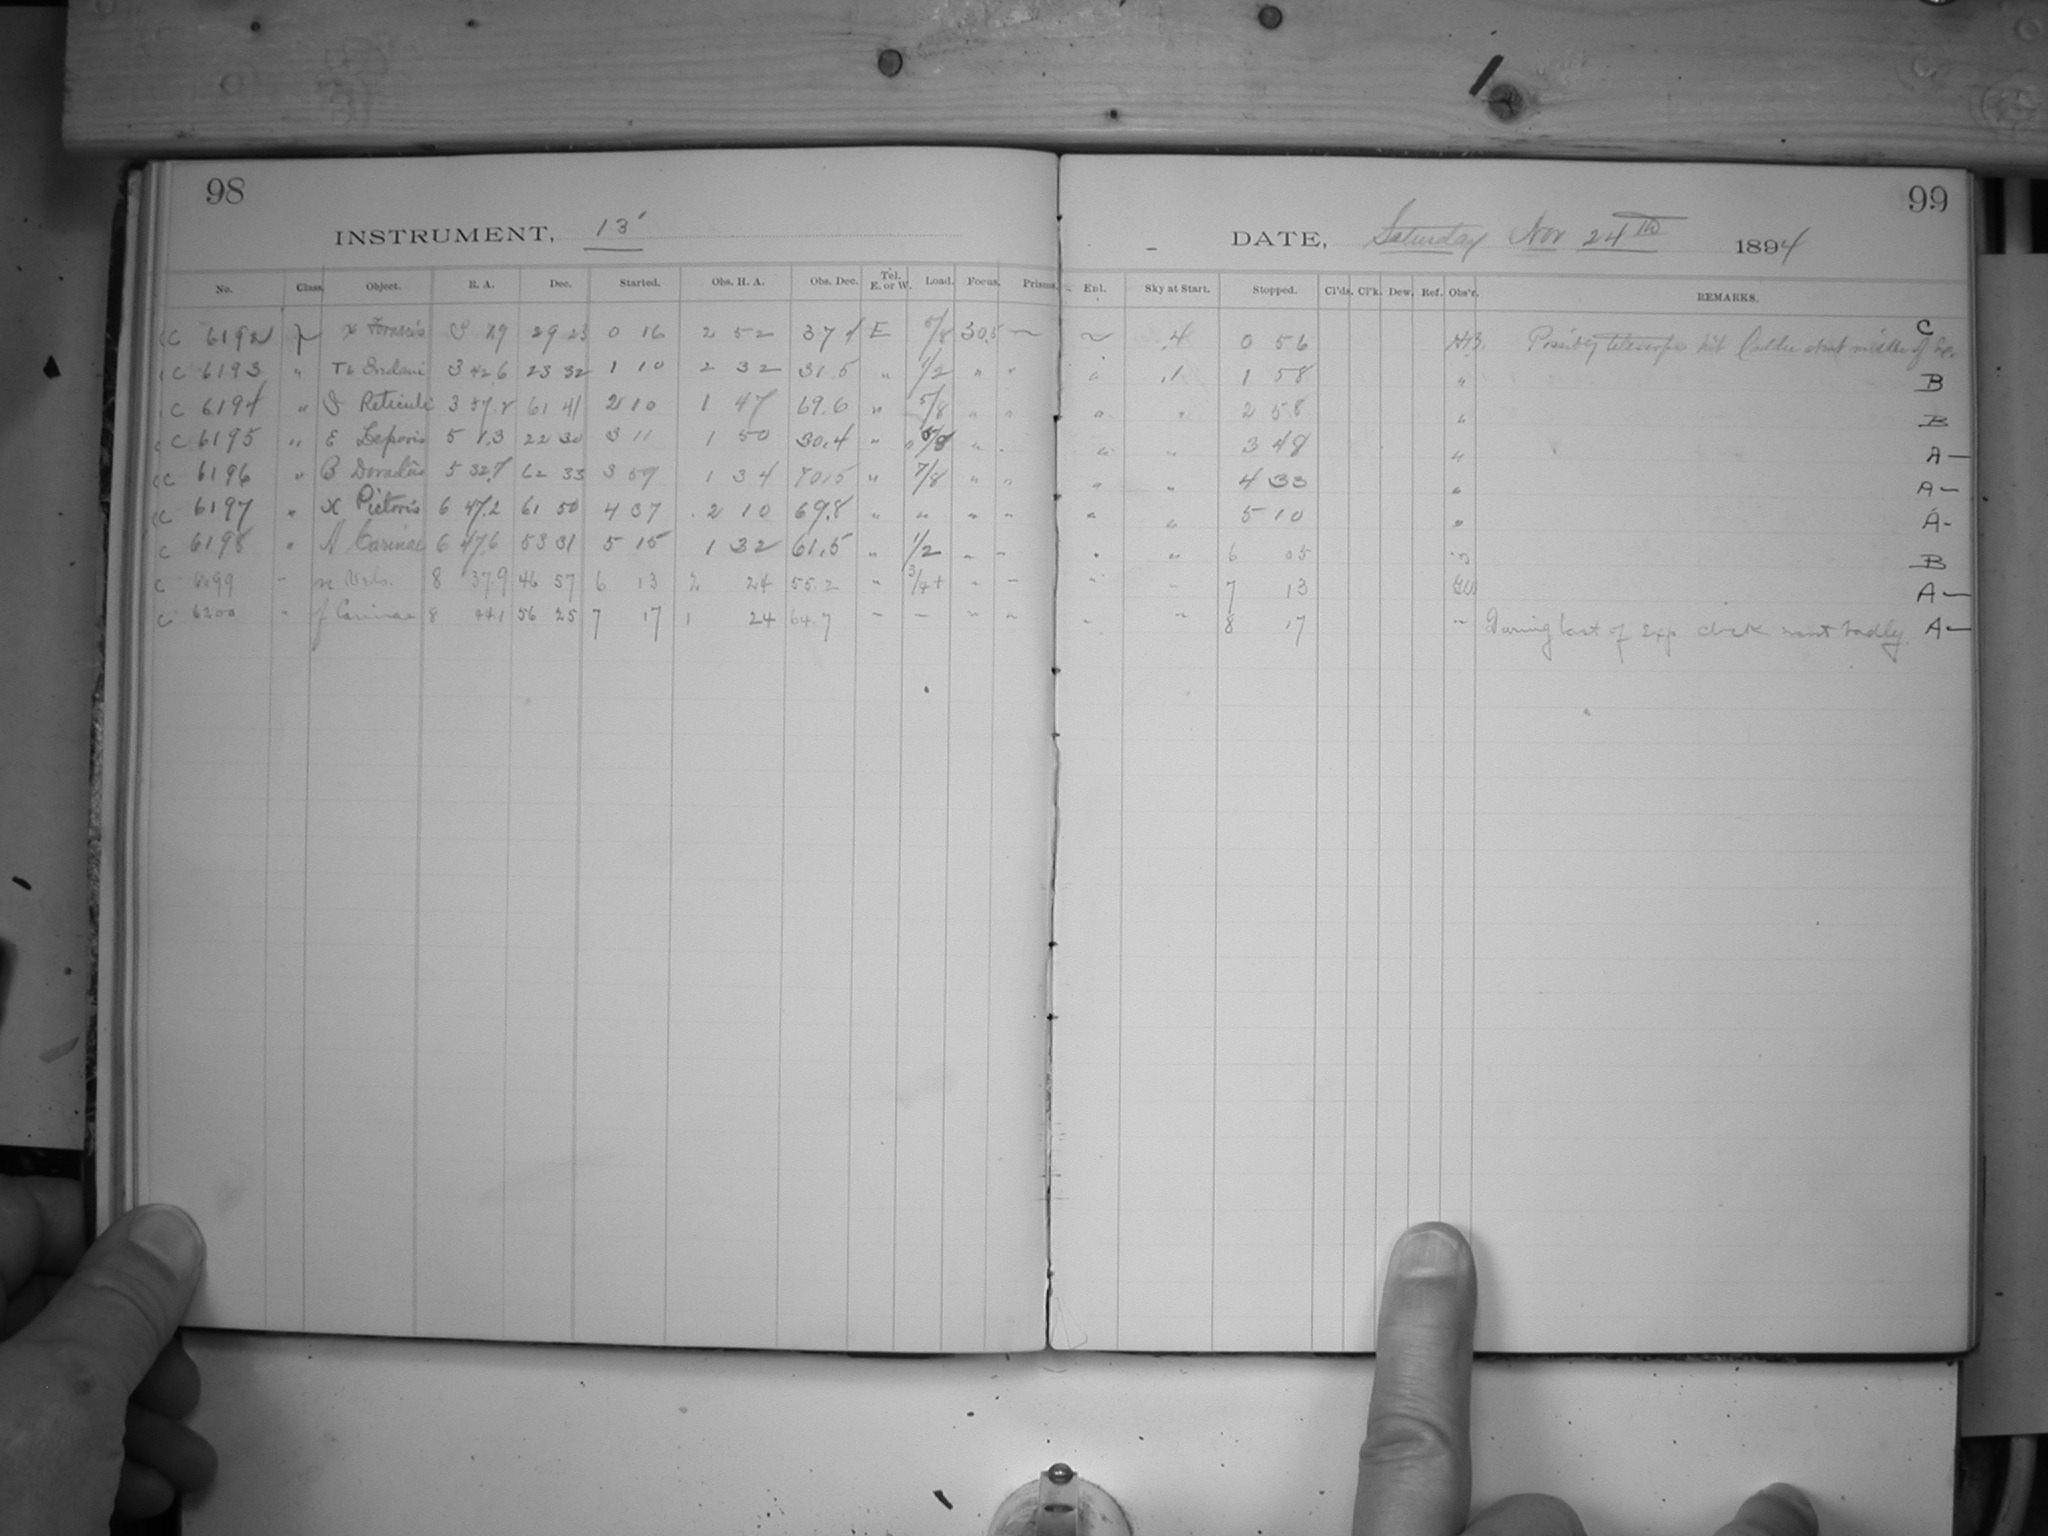 98
99
INSTRUMENT, 13"
DATE, Saturday Nov 24th 1894
No. Class. Object. R. A. Dec. Started. Obs. H. A. Obs. Dec. Tel. E. or W. Load. Focus. Prisms. Enl. Sky at Start. Stopped. Cl'ds. Cl'k. Dew. Ref. Obs'r. REMARKS.
C 6192 29 23 0 16 2 52 37 E 5/8 30.5 ~ ~ .4 0 56 Possibly telescope hit C
C 6193 " 3 42.6 23 32 1 10 2 32 31.5 " 1/2 " " " .1 1 58 " B
C 6194 " Reticuli 61 41 2 10 1 47 69.6 " 5/8 " " " " 2 58 " B
C 6195 " E Leporis 5 1.3 22 30 3 11 1 50 30.4 " 5/8 " " " " 3 48 " A-
C 6196 " B Doradus 5 32.7 62 33 3 59 1 34 70.5 " 7/8 " " " " 4 33 " A-
C 6197 " Pictoris 6 47.2 61 50 4 37 2 10 69.8 " " " " " " 5 10 " A-
C 6198 " N Carinae 6 47.6 53 31 5 15 1 32 61.5 " 1/2 " " " " 6 05 " B
C 6099 " 8 37.9 46 57 6 13 2 24 55.2 " 3/4+ " " " " 7 13 A-
C 6200 " f Carinae 8 44.1 56 25 7 17 1 24 64.7 " " " " " " 8 17 " During last of exp clock went badly A-